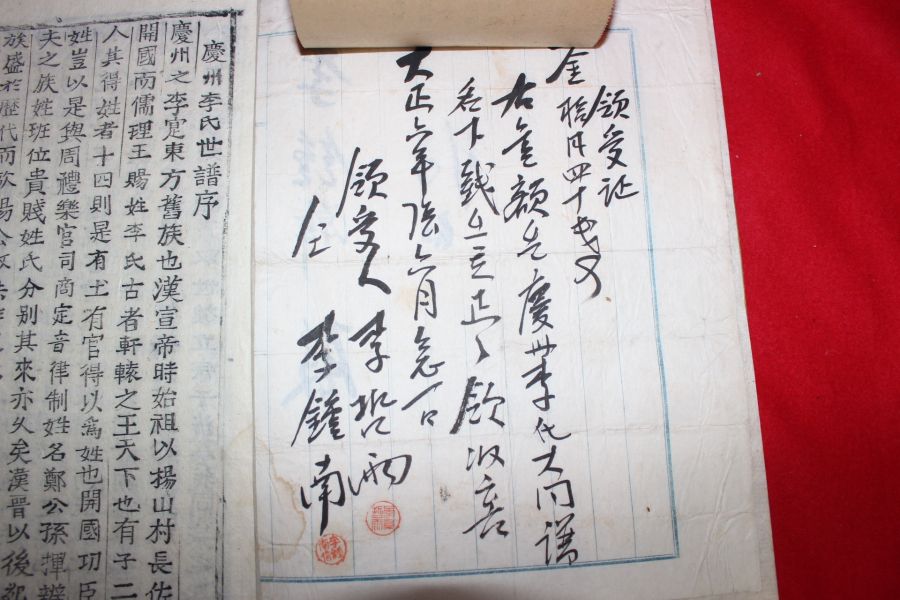 領受証
金拾円四十戔
右金額은慶州李氏大同譜
名下戔으로正히領收喜
大正六年陰六月念日
領受人 李哲雨
仝 李鍾南
慶州李氏世譜序
慶州之李寔東方舊族也漢宣帝時始祖以揚山村長佐
開國南儒理王賜姓李氏古者軒轅之王天下也有子二
人其得姓者十四則是有土有官得以爲姓也開國功臣
姓豈以是與周禮樂官司商定音律制姓名鄭公孫揮辨
夫之族姓班位貴賤姓氏分別其來亦久矣漢晉以後
族盛於歷代而歐陽公